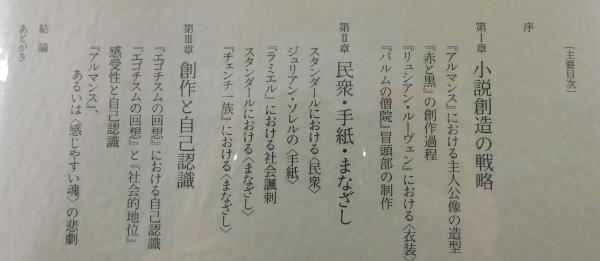 ［主要目次］
序
第Ⅰ章 小説創造の戦略
『アルマンス』における主人公像の造型
『赤と黒』の創作過程
『リュシアン・ルーヴェン』における〈衣装〉
『パルムの僧院』冒頭部の制作
第Ⅱ章 民衆・手紙・まなざし
スタンダールにおける〈民衆〉
ジュリアン・ソレルの〈手紙〉
『ラミエル』における社会諷刺
スタンダールにおける〈まなざし〉
『チェンチ一族』における〈まなざし〉
第Ⅲ章 創作と自己認識
『エゴチスムの回想』における自己認識
『エゴチスムの回想』と『社会的地位』
感受性と自己認識
『アルマンス』、
あるいは〈感じやすい魂〉の悲劇
結論
あとがき